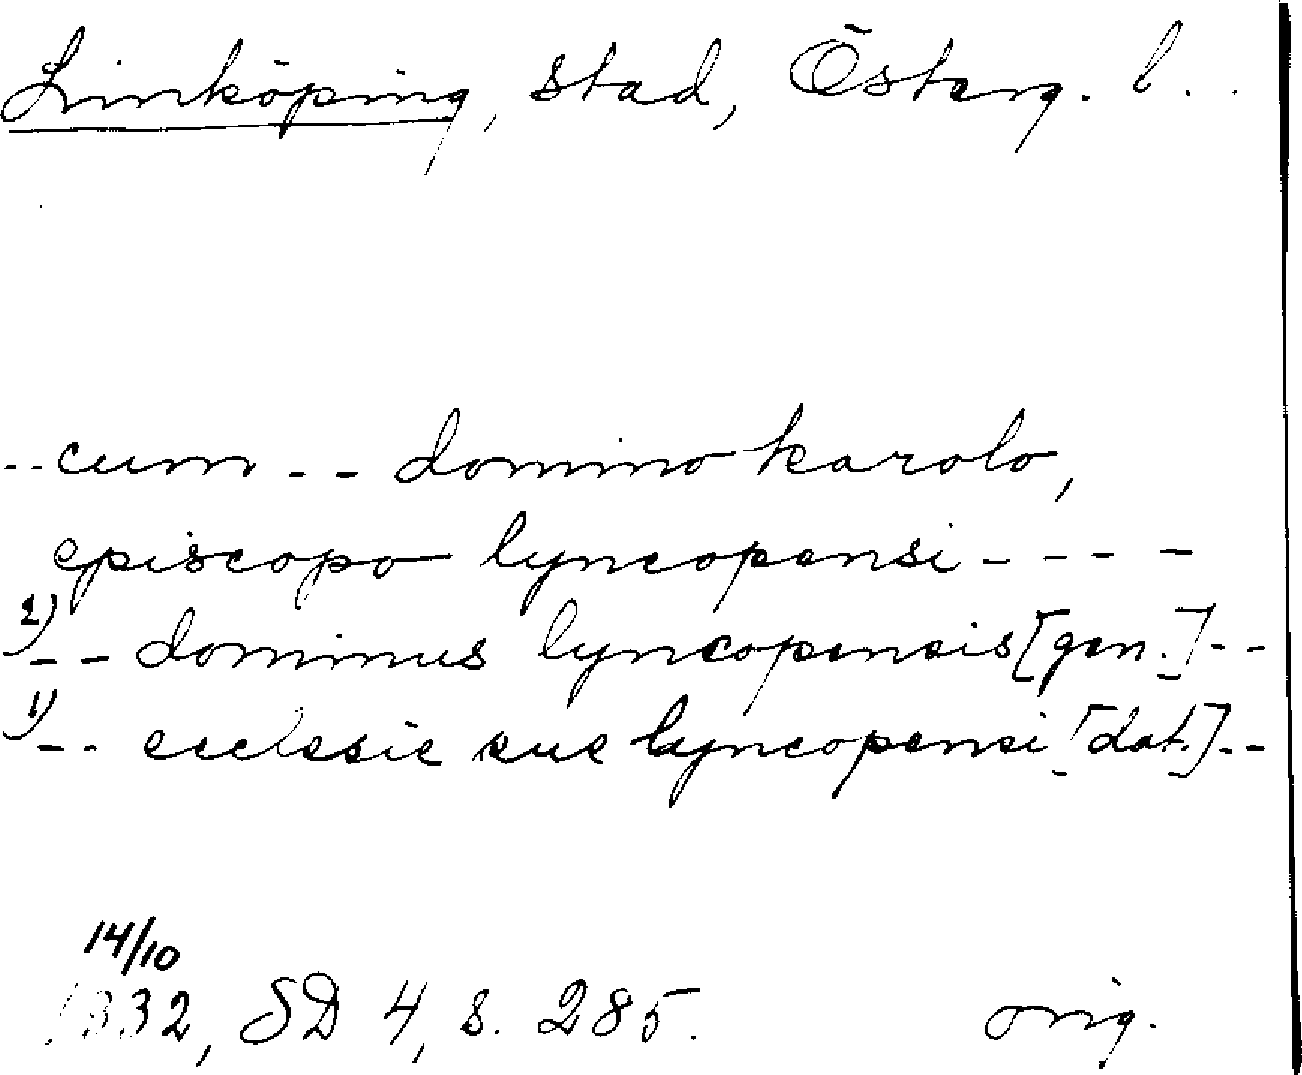 Linköping, stad, Österg. l..
-- cum -- domino karolo,
episcopo lyncopensi ----
2) -- dominus lyncopensis [gen.] --
1) -- ecclesie sue lyncopensi [dat.] --
14/10
1332, SD 4, s. 285. orig.